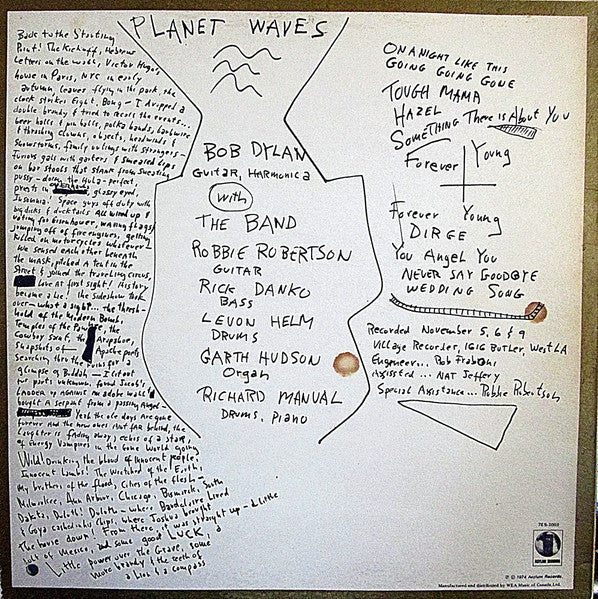 PLANET WAVES
Back to the Starting
Point! The Kickoff, Hebrew
Letters on the wall, Victor Hugo's
house in Paris, NYC in early
autumn, leaves flying in the park, the
clock strikes Eight. Bong - I dropped a
double brandy & tried to recall the events..
beer halls & pin balls, polka bands, barbwire
& thrashing clowns, objects, headwinds &
snowstorms, family outings with strangers -
Furious gals with garters & smeared Lips
on bar stools that stank from sweating
pussy - doing the Hula - perfect,
priests in overhauls, glassy eyed,
Insomnia! Space guys off duty with
big dicks & ducktails All wired up &
voting for Eisenhower, waving flags &
jumping off of fire engines, getting
killed on motorcycles whatever -
We sensed each other beneath
the mask, pitched a tent in the
Street & joined the traveling circus,
Love at first sight! History
became a Lie! the sideshow took
over - what a sight... the thresh-
hold of the Modern Bomb,
Temples of the Pawnee, the
Cowboy Saint, the Arapahoe,
Snapshots of Apache poets
searching thru the ruins for a
glimpse of Buddah - I lit out
for parts unknown, found Jacob's
Ladder up against an adobe wall &
bought a serpent from a passing Angel -
Yeah the ole days are gone
forever and the new ones aint far behind, the
Laughter is fading away, echos of a star,
of Energy Vampires in the Gone World going
Wild! Drinking the blood of innocent people,
Innocent Lambs! The Wretched of the Earth,
My brothers of the flood, Cities of the flesh -
Milwaukee, Ann Arbor, Chicago, Bismarck, South
Dakota, Duluth! Duluth - where Baudelaire Lived
& Goya cashed in his Chips, where Joshua brought
the house down! From there, it was straight up - a Little
jolt of Mexico, and some good LUCK, a
Little power over the Grave, some
more brandy & the teeth of
a Lion & a compass
BOB DYLAN
Guitar, Harmonica
with
THE BAND
ROBBIE ROBERTSON
GUITAR
RICK DANKO
BASS
LEVON HELM
DRUMS
GARTH HUDSON
Organ
RICHARD MANUAL
DRUMS, Piano
ON A NIGHT LIKE THIS
GOING GOING GONE
TOUGH MAMA
HAZEL
SOMETHING There is About You
Forever Young
Forever Young
DIRGE
You Angel You
NEVER SAY GOODBYE
WEDDING SONG
Recorded November 5, 6 & 9
Village Recorder, 1616 Butler, West LA
Engineer... Rob Fraboni
Assisted... NAT Jeffery
Special Assistance... Robbie Robertson
7ES-1003
ASYLUM RECORDS
℗ © 1974 Asylum Records.
Manufactured and distributed by WEA Music of Canada, Ltd.